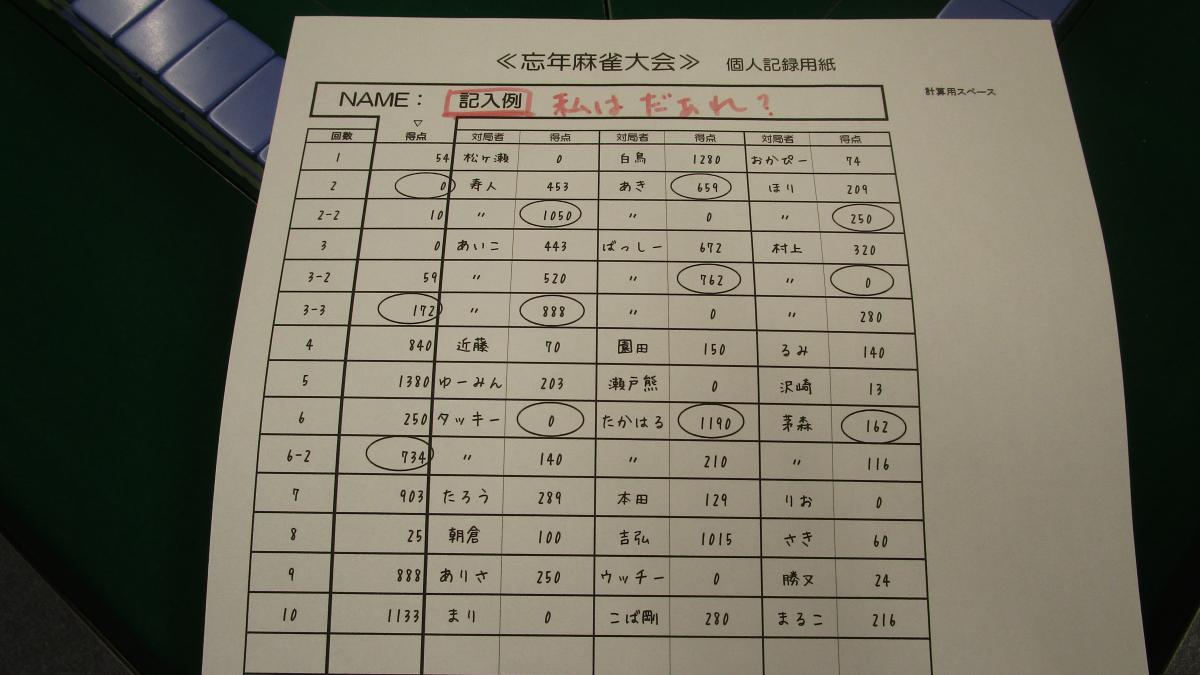 ≪忘年麻雀大会≫ 個人記録用紙
計算用スペース
NAME： 記入例 私はだぁれ？
▽
回数 得点 対局者 得点 対局者 得点 対局者 得点
1 54 松ヶ瀬 0 白鳥 1280 おかぴー 74
2 0 寿人 453 あき 659 ほり 209
2-2 10 〃 1050 〃 0 〃 250
3 0 あいこ 443 ばっしー 672 村上 320
3-2 59 〃 520 〃 762 〃 0
3-3 172 〃 888 〃 0 〃 280
4 840 近藤 70 園田 150 るみ 140
5 1380 ゆーみん 203 瀬戸熊 0 沢崎 13
6 250 タッキー 0 たかはる 1190 茅森 162
6-2 734 〃 140 〃 210 〃 116
7 903 たろう 289 本田 129 りお 0
8 25 朝倉 100 吉弘 1015 さき 60
9 888 ありさ 250 ウッチー 0 勝又 24
10 1133 まり 0 こば剛 280 まるこ 216